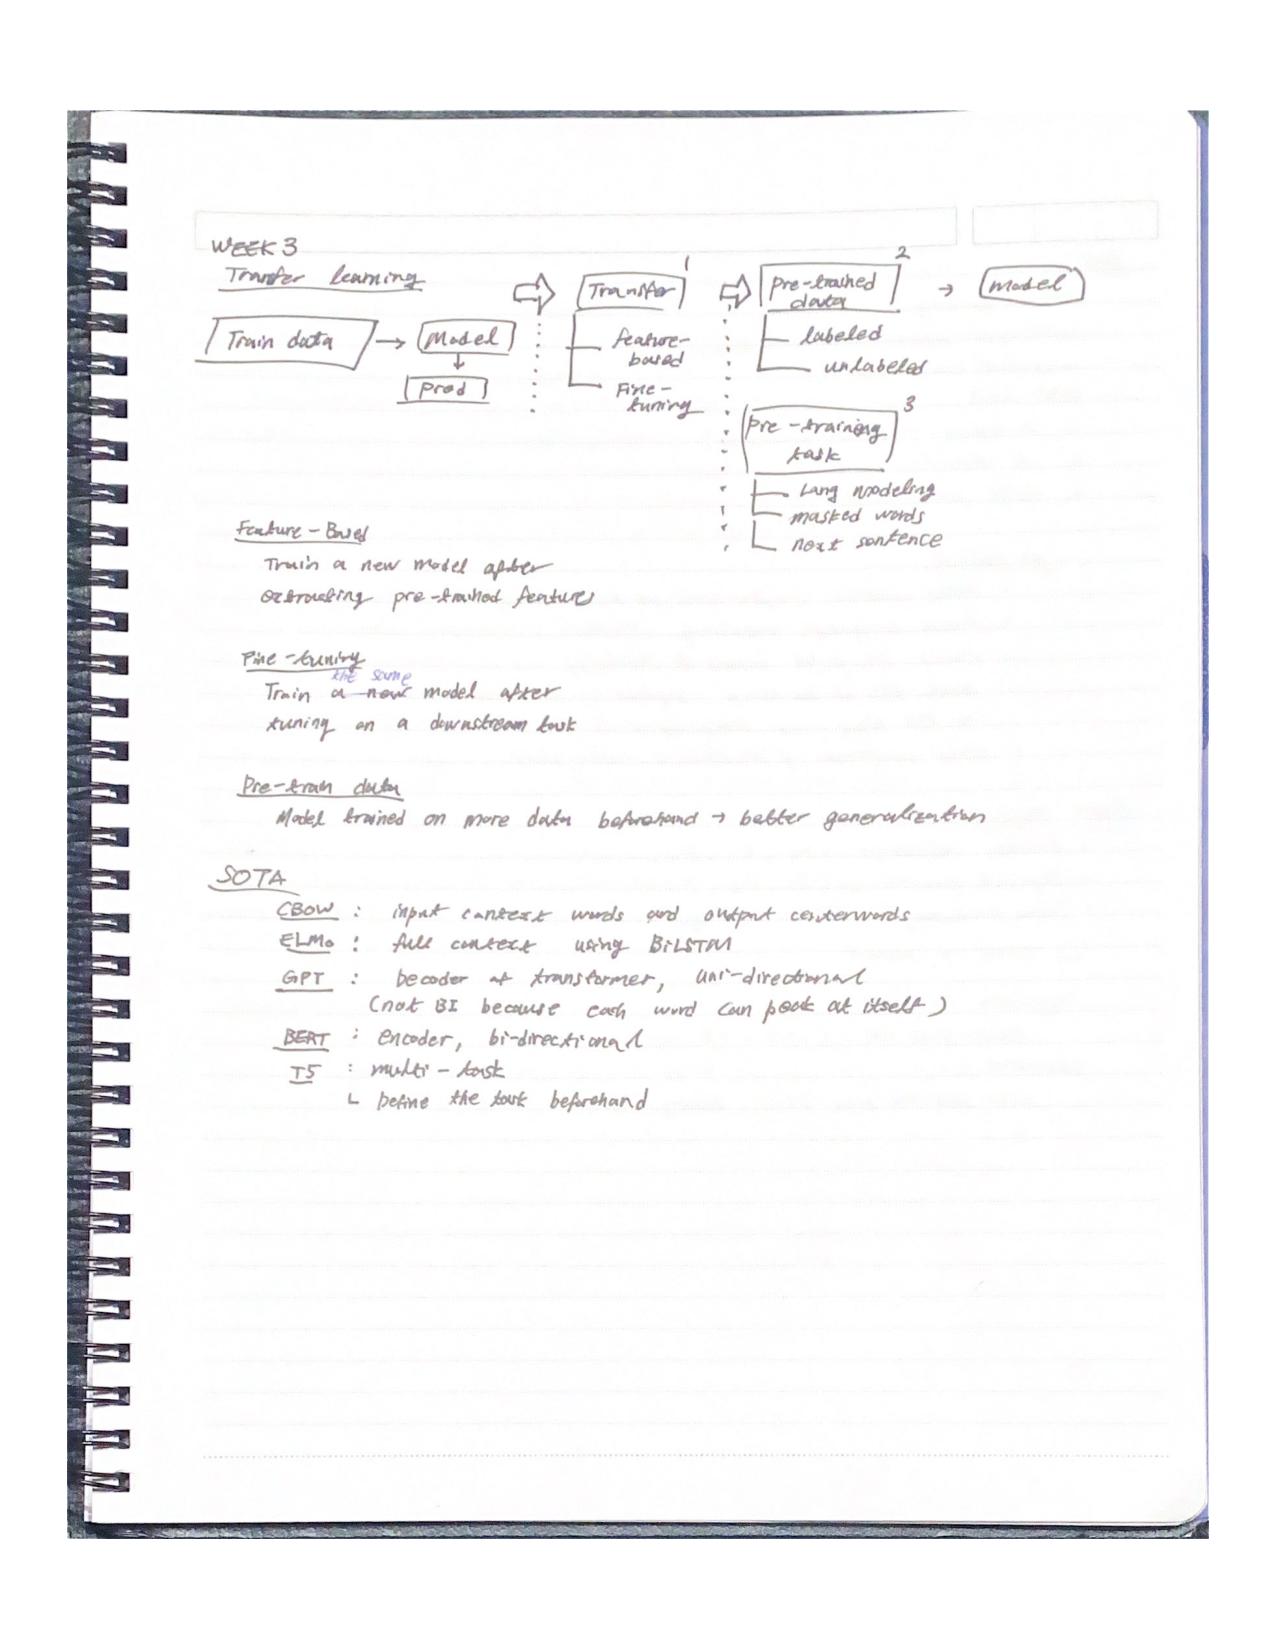 WEEK 3
Transfer learning
Train data → Model
↓
Prod
1
Transfer
feature-
based
Fine-
tuning
2
pre-trained
data
labeled
unlabeled
→ model
3
pre-training
task
Lang modeling
masked words
next sentence
Feature-Based
Train a new model after
extracting pre-trained feature
Fine-tuning
the same
Train a new model after
tuning on a downstream task
Pre-train data
Model trained on more data beforehand → better generalization
SOTA
CBOW : input context words and output centerwords
ELMo : full context using BiLSTM
GPT : Decoder of transformer, uni-directional
(not BI because each word can peek at itself)
BERT : encoder, bi-directional
T5 : multi-task
└ Define the task beforehand